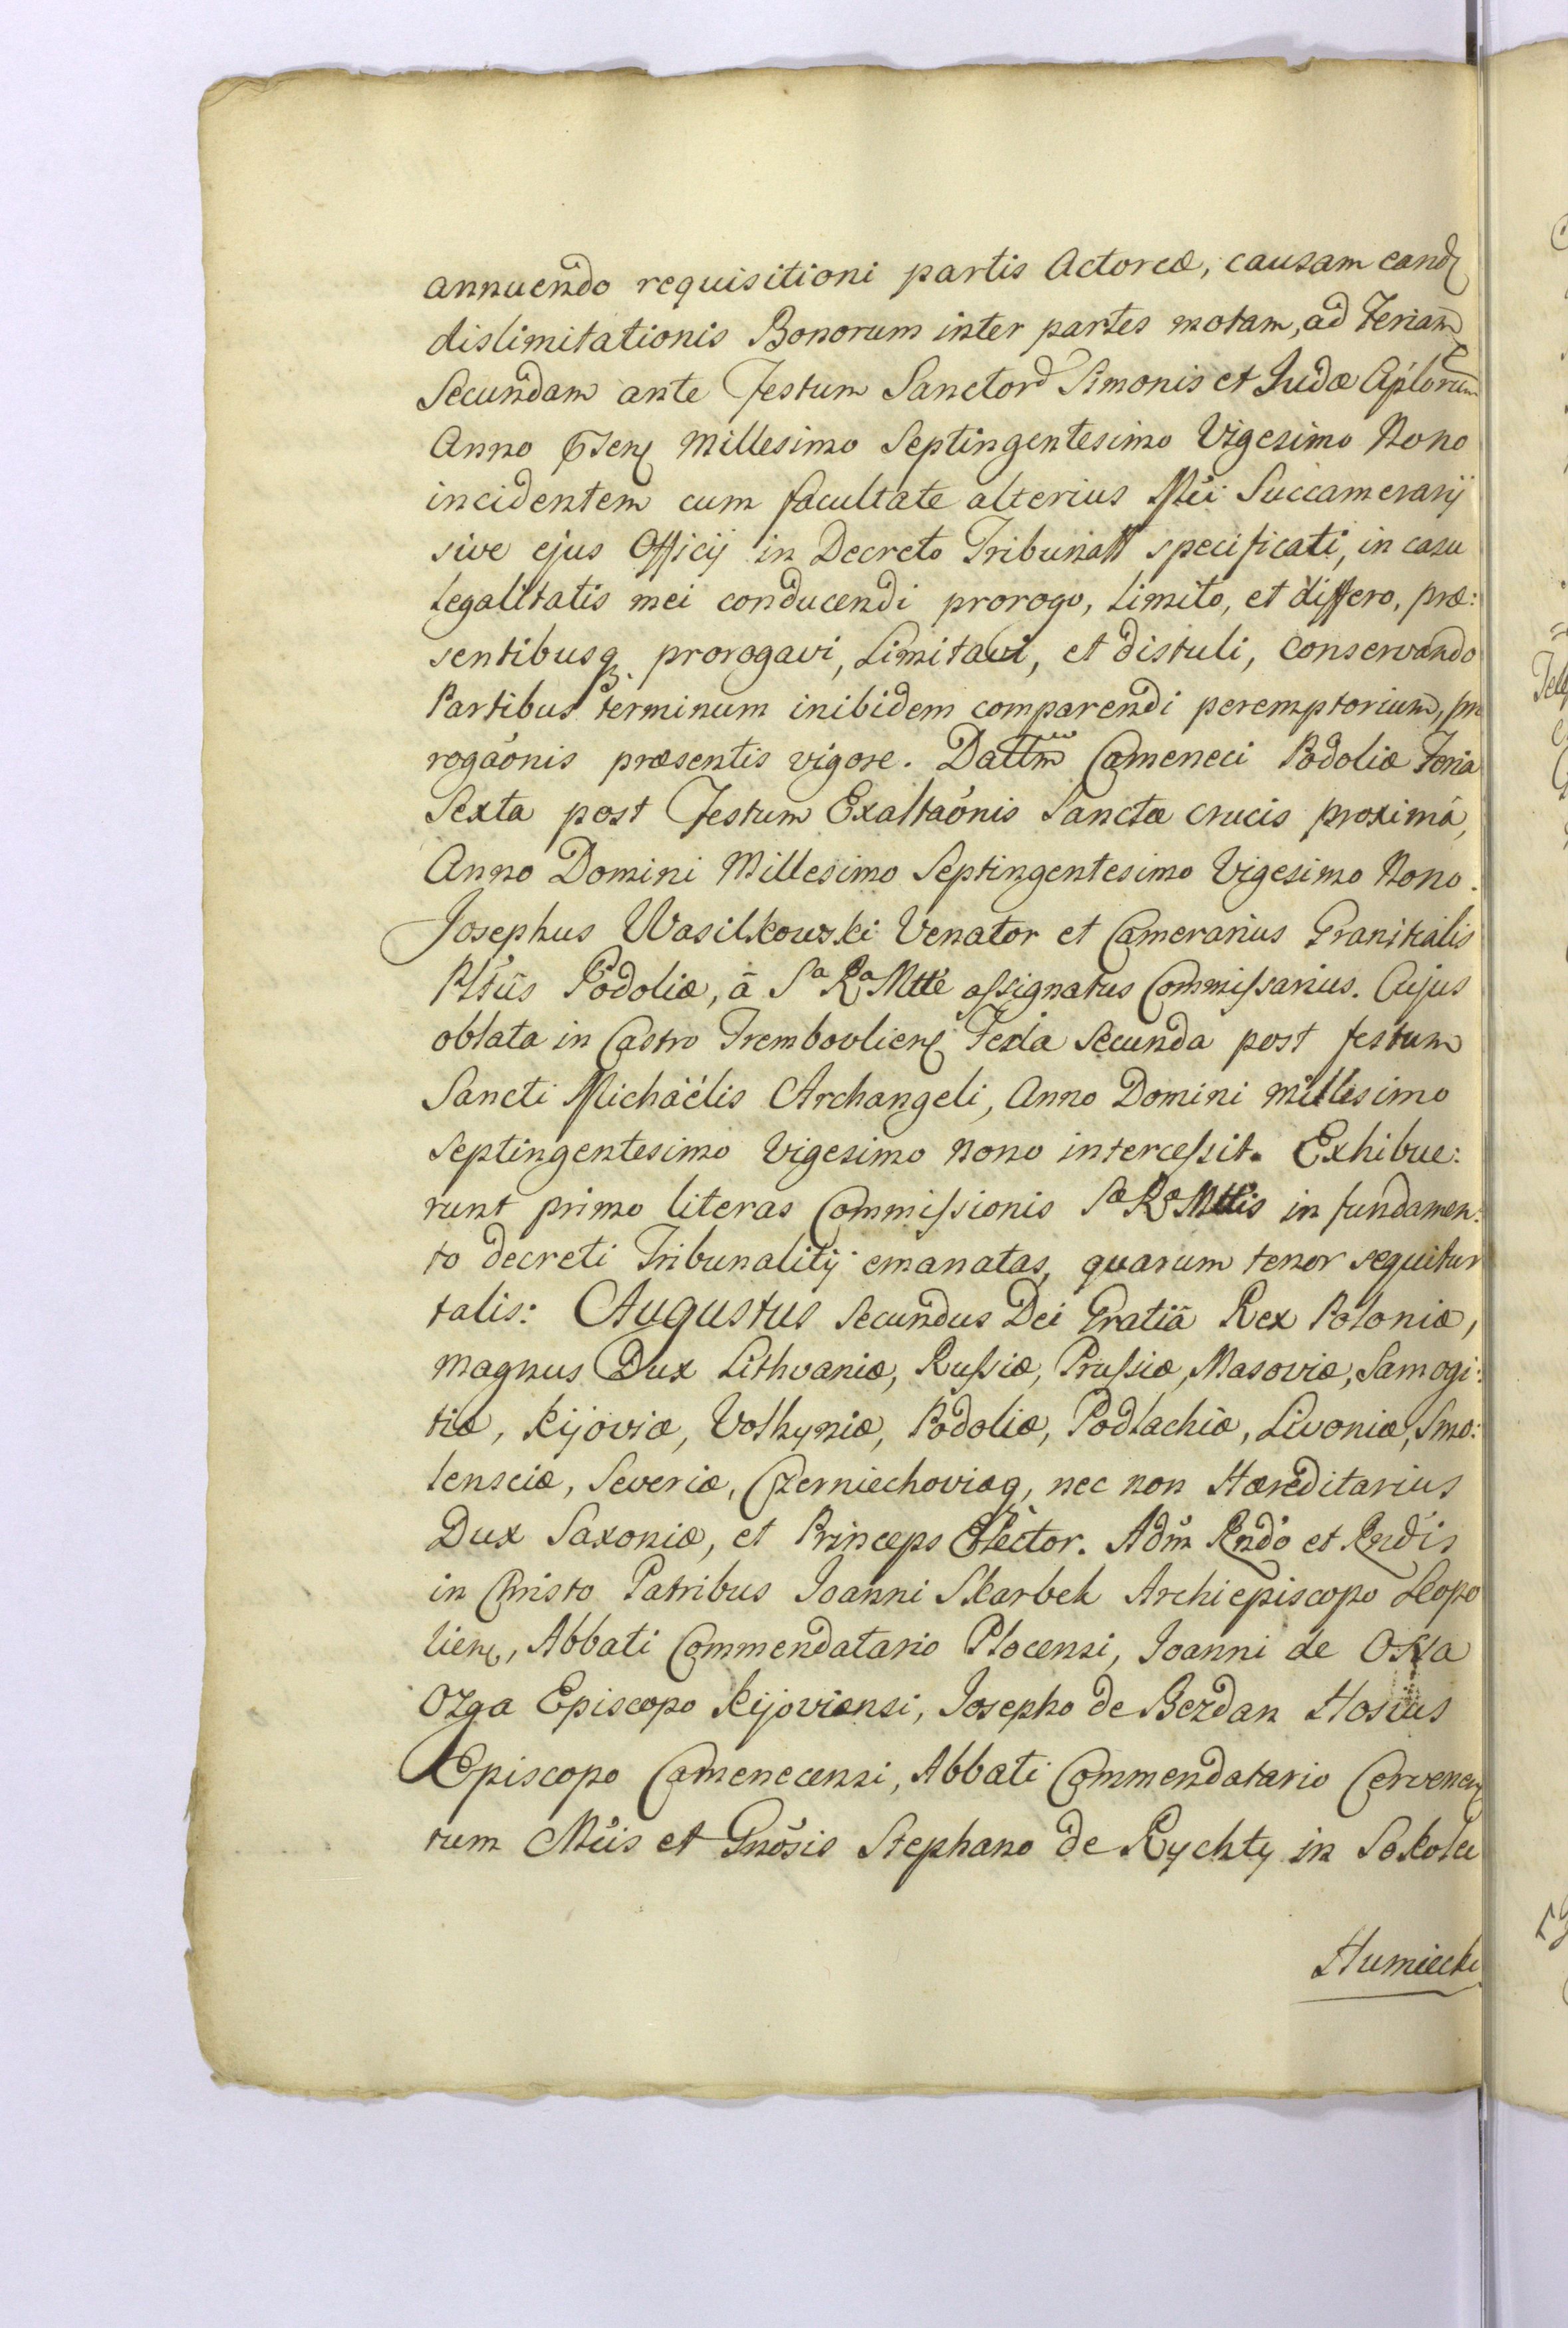 annuendo requisitioni partis Actoreæ, causam eand
dislimitationis Bonorum inter partes motam, ad Feriam
Secundam ante Festum Sanctor Simonis et Judæ Aplorum
Anno Millesimo Septingentesimo Vigesimo Nono
incidentem cum facultate alterius Mci Succamerarij
sive ejus Officij in Decreto Tribunall specificati, in casu
legalitatis mei conducendi prorogo, limito, et differo, præ:
sentibusq prorogavi, Limitavi, et distuli, conservando
Partibus terminum inibidem comparendi peremptorium, pro
rogaónis præsentis vigore. Dattm Cameneci Podoliæ Feria
Sexta post Festum Exaltaónis Sanctæ Crucis proxima,
Anno Domini Millesimo Septingentesimo Vigesimo Nono.
Josephus Wasilkowski Venator et Camerarius Granitialis
Pltūs Podoliæ, â Sa Ra Mtte assignatus Commissarius. Cujus
oblata in Castro Trembovlien Feria Secunda post festum
Sancti Michaëlis Archangeli, Anno Domini millesimo
septingentesimo Vigesimo nono intercessit. Exhibue:
runt primo literas Commissionis Sæ Ræ Mttis in fundamen:
to decreti Tribunalitij emanatas, quarum tenor sequitur
talis: Augustus Secundus Dei Gratiâ Rex Poloniæ,
magnus Dux Lithvaniæ, Russiæ, Prussiæ, Masoviæ, Samogi:
tiæ, Kijoviæ, Volhyniæ, Podoliæ, Podlachiæ, Livoniæ, Smo:
lensciæ, Severiæ, Czerniechoviæq, nec non Hæreditarius
Dux Saxoniæ, et Princeps Elector. Adm Rndo et Rndis
in Christo Patribus Joanni Skarbek Archiepiscopo Leopo
lien, Abbati Commendatario Plocensi, Joanni de Ossa
Ozga Episcopo Kijoviensi, Josepho de Bezdan Hosius
Episcopo Camenecensi, Abbati Commendatario Cervenen
tum Mcis et Gnosis Stephano de Rychty in Sokolec
Humiecki